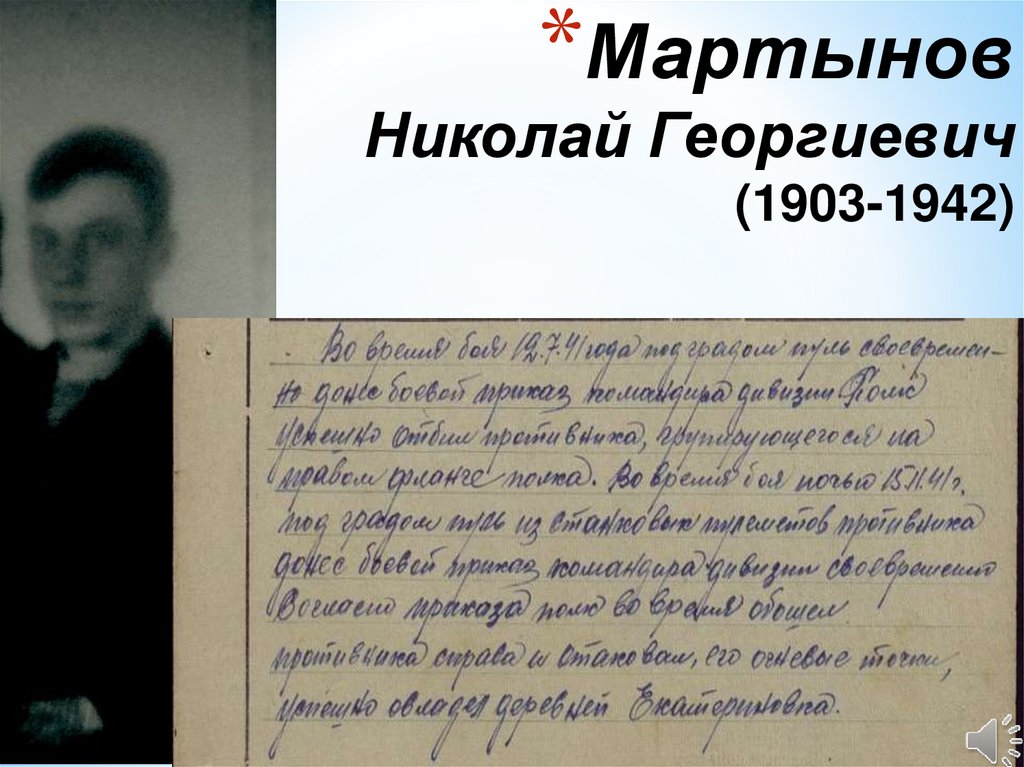 *Мартынов
Николай Георгиевич
(1903-1942)
Во время боя 12.7.41 года под градом пуль своевремен-
но донес боевой приказ командира дивизии Полк
успешно отбил противника, групирующегося на
правом фланге полка. Во время боя ночью 15.11.41 г.
под градом пуль из станковых пулеметов противника
донес боевой приказ командира дивизии своевременно
Согласно приказа полк во время обошел
противника справа и отаковал, его огневые точки,
успешно овладел деревней Екатериновка.